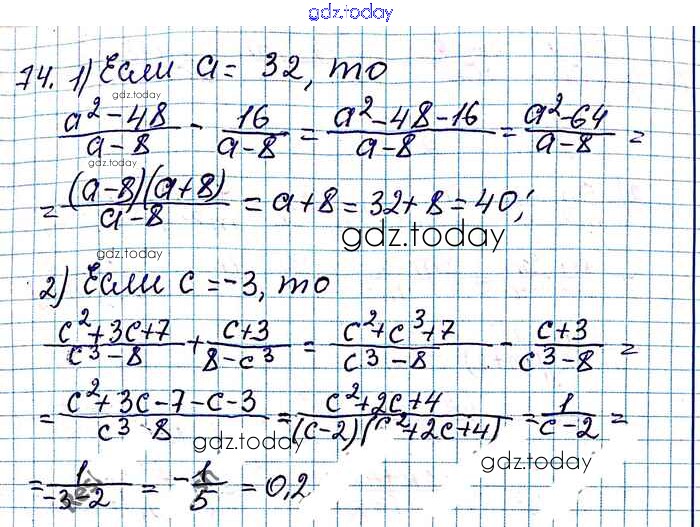 gdz.today
74. 1) Если a = 32, то
gdz.today
(a² - 48)/(a - 8) - 16/(a - 8) = (a² - 48 - 16)/(a - 8) = (a² - 64)/(a - 8) =
gdz.today
= ((a - 8)(a + 8))/(a - 8) = a + 8 = 32 + 8 = 40;
gdz.today
gdz.today
2) Если c = -3, то
(c² + 3c + 7)/(c³ - 8) + (c + 3)/(8 - c³) = (c² + c³ + 7)/(c³ - 8) - (c + 3)/(c³ - 8) =
= (c² + 3c - 7 - c - 3)/(c³ - 8) = (c² + 2c + 4)/((c - 2)(c² + 2c + 4)) = 1/(c - 2) =
gdz.today
gdz.today
= 1/(-3 - 2) = -1/5 = 0,2